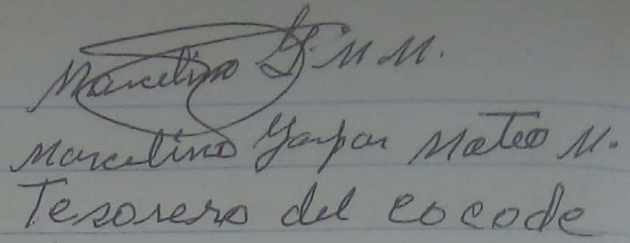 Marcelino G. M M.
Marcelino Gaspar Mateo M.
Tesorero del cocode